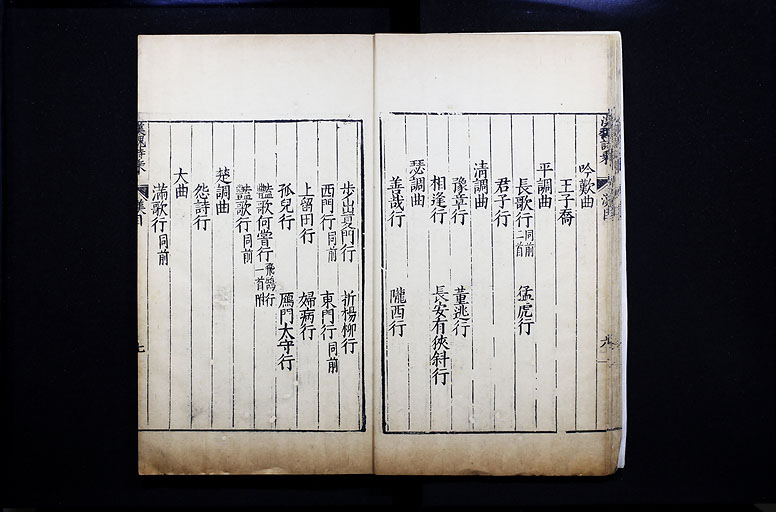 吟歎曲
王子喬
平調曲
長歌行 同前二首 猛虎行
君子行
清調曲
豫章行 董逃行
相逢行 長安有狹斜行
瑟調曲
善哉行 隴西行
步出夏門行 折楊柳行
西門行 同前 東門行 同前
上留田行 婦病行
孤兒行 鴈門太守行
豔歌何嘗行 飛鵠行一首附
豔歌行 同前
楚調曲
怨詩行
大曲
滿歌行 同前
漢魏詩乘